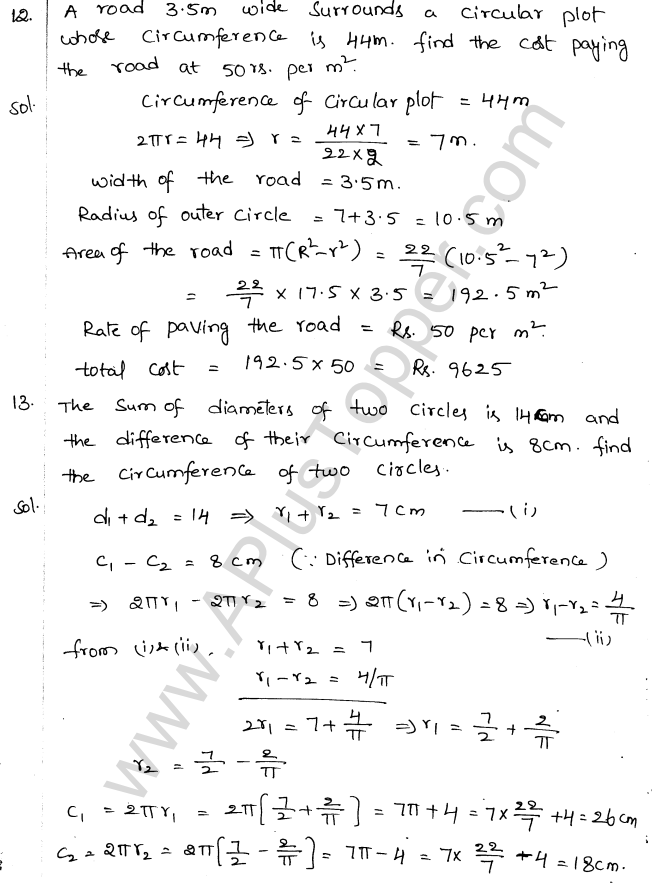 12. A road 3.5m wide surrounds a circular plot
whose circumference is 44m. find the cost paying
the road at 50 rs. per m².
sol. Circumference of circular plot = 44m
2πr = 44 ⇒ r = 44×7 / 22×2 = 7m.
width of the road = 3.5m.
Radius of outer circle = 7+3.5 = 10.5 m
Area of the road = π(R²-r²) = 22/7 (10.5² - 7²)
= 22/7 × 17.5 × 3.5 = 192.5 m²
Rate of paving the road = Rs. 50 per m².
total cost = 192.5 × 50 = Rs. 9625
13. The Sum of diameters of two circles is 14cm and
the difference of their Circumference is 8cm. find
the circumference of two circles.
sol. d₁ + d₂ = 14 ⇒ r₁ + r₂ = 7cm —(i)
C₁ - C₂ = 8 cm (∵ Difference in Circumference)
⇒ 2πr₁ - 2πr₂ = 8 ⇒ 2π(r₁-r₂) = 8 ⇒ r₁-r₂ = 4/π
—(ii)
from (i) & (ii), r₁ + r₂ = 7
r₁ - r₂ = 4/π
2r₁ = 7 + 4/π ⇒ r₁ = 7/2 + 2/π
r₂ = 7/2 - 2/π
C₁ = 2πr₁ = 2π[7/2 + 2/π] = 7π + 4 = 7 × 22/7 + 4 = 26cm
C₂ = 2πr₂ = 2π[7/2 - 2/π] = 7π - 4 = 7× 22/7 - 4 = 18cm.
www.APlusTopper.com